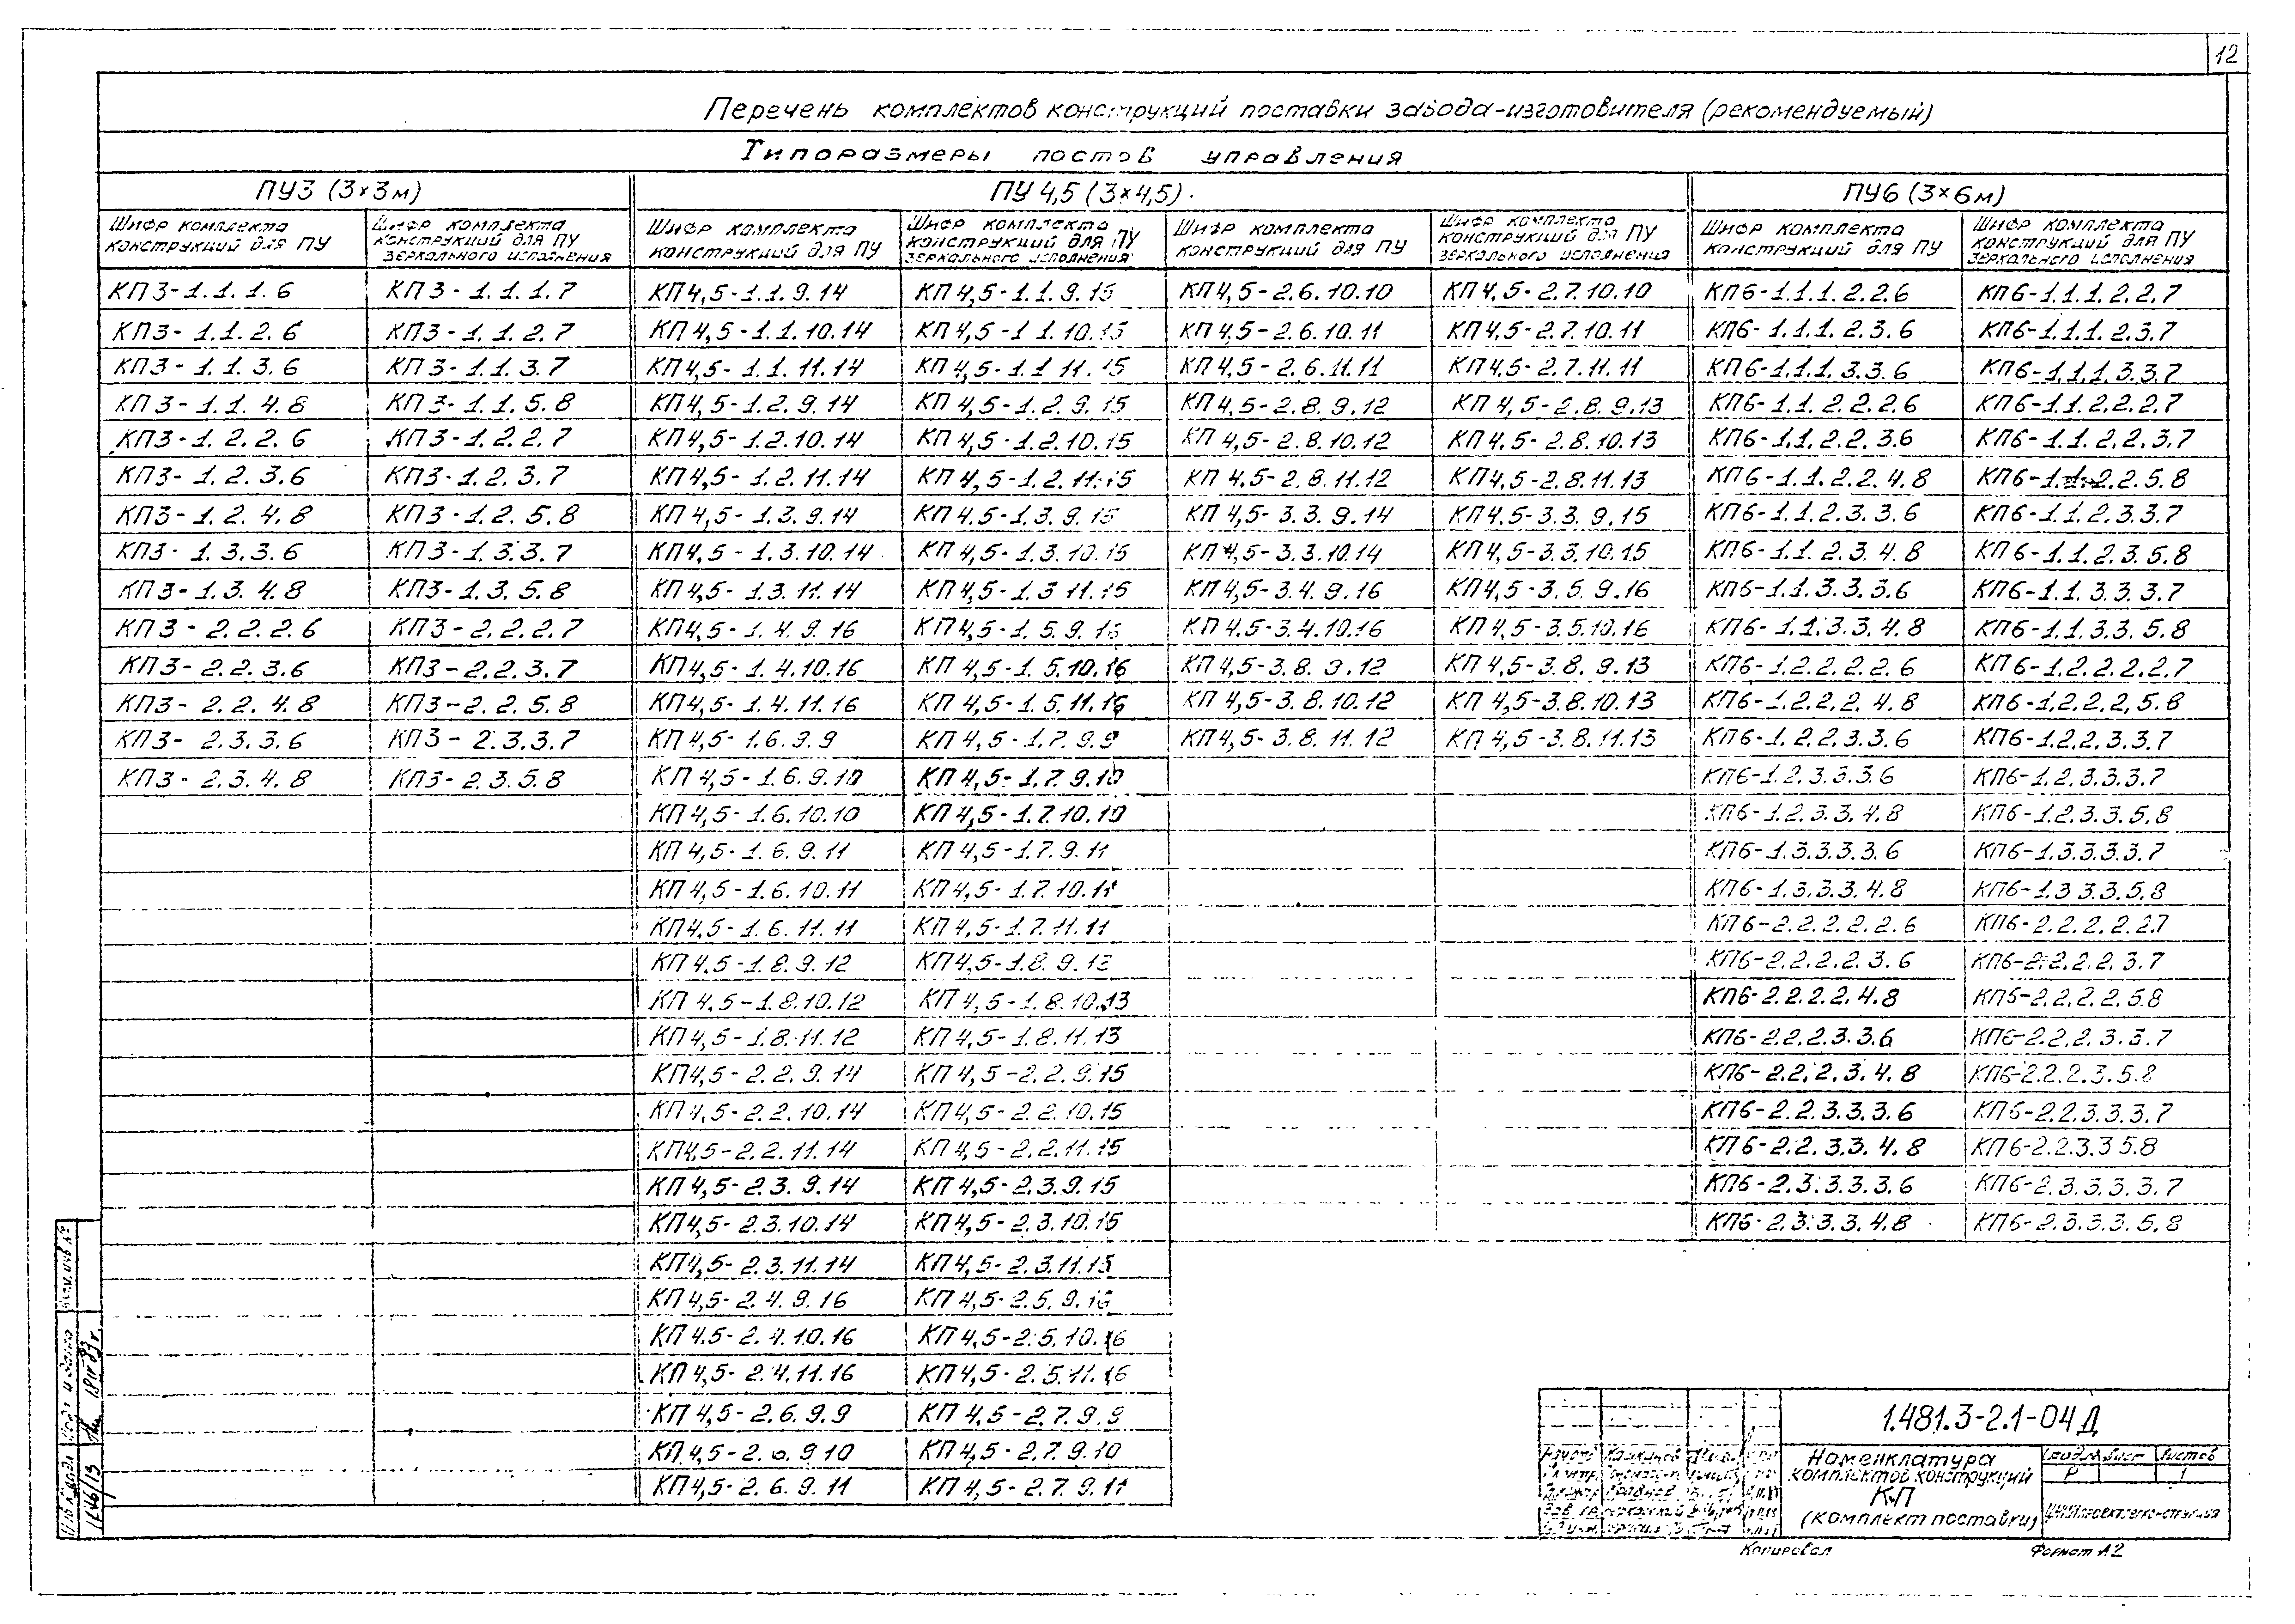 12
Перечень комплектов конструкций поставки завода-изготовителя (рекомендуемый)
Типоразмеры постов управления
ПУ3 (3×3м) ПУ 4,5 (3×4,5) ПУ6 (3×6м)
Шифр комплекта конструкций для ПУ Шифр комплекта конструкций для ПУ зеркального исполнения Шифр комплекта конструкций для ПУ Шифр комплекта конструкций для ПУ зеркального исполнения Шифр комплекта конструкций для ПУ Шифр комплекта конструкций для ПУ зеркального исполнения Шифр комплекта конструкций для ПУ Шифр комплекта конструкций для ПУ зеркального исполнения
КП3-1.1.1.6 КП3-1.1.1.7 КП4,5-1.1.9.14 КП4,5-1.1.9.15 КП4,5-2.6.10.10 КП4,5-2.7.10.10 КП6-1.1.1.2.2.6 КП6-1.1.1.2.2.7
КП3-1.1.2.6 КП3-1.1.2.7 КП4,5-1.1.10.14 КП4,5-1.1.10.15 КП4,5-2.6.10.11 КП4,5-2.7.10.11 КП6-1.1.1.2.3.6 КП6-1.1.1.2.3.7
КП3-1.1.3.6 КП3-1.1.3.7 КП4,5-1.1.11.14 КП4,5-1.1 11.15 КП4,5-2.6.11.11 КП4,5-2.7.11.11 КП6-1.1.1.3.3.6 КП6-1.1.1.3.3.7
КП3-1.1.4.8 КП3-1.1.5.8 КП4,5-1.2.9.14 КП4,5-1.2.9.15 КП4,5-2.8.9.12 КП4,5-2.8.9.13 КП6-1.1.2.2.2.6 КП6-1.1.2.2.2.7
КП3-1.2.2.6 КП3-1.2.2.7 КП4,5-1.2.10.14 КП4,5-1.2.10.15 КП4,5-2.8.10.12 КП4,5-2.8.10.13 КП6-1.1.2.2.3.6 КП6-1.1.2.2.3.7
КП3-1.2.3.6 КП3-1.2.3.7 КП4,5-1.2.11.14 КП4,5-1.2.11.15 КП4,5-2.8.11.12 КП4,5-2.8.11.13 КП6-1.1.2.2.4.8 КП6-1.1.2.2.5.8
КП3-1.2.4.8 КП3-1.2.5.8 КП4,5-1.3.9.14 КП4,5-1.3.9.15 КП4,5-3.3.9.14 КП4,5-3.3.9.15 КП6-1.1.2.3.3.6 КП6-1.1.2.3.3.7
КП3-1.3.3.6 КП3-1.3.3.7 КП4,5-1.3.10.14 КП4,5-1.3.10.15 КП4,5-3.3.10.14 КП4,5-3.3.10.15 КП6-1.1.2.3.4.8 КП6-1.1.2.3.5.8
КП3-1.3.4.8 КП3-1.3.5.8 КП4,5-1.3.11.14 КП4,5-1.3 11.15 КП4,5-3.4.9.16 КП4,5-3.5.9.16 КП6-1.1.3.3.3.6 КП6-1.1.3.3.3.7
КП3-2.2.2.6 КП3-2.2.2.7 КП4,5-1.4.9.16 КП4,5-1.5.9.16 КП4,5-3.4.10.16 КП4,5-3.5.10.16 КП6-1.1.3.3.4.8 КП6-1.1.3.3.5.8
КП3-2.2.3.6 КП3-2.2.3.7 КП4,5-1.4.10.16 КП4,5-1.5.10.16 КП4,5-3.8.9.12 КП4,5-3.8.9.13 КП6-1.2.2.2.2.6 КП6-1.2.2.2.2.7
КП3-2.2.4.8 КП3-2.2.5.8 КП4,5-1.4.11.16 КП4,5-1.5.11.16 КП4,5-3.8.10.12 КП4,5-3.8.10.13 КП6-1.2.2.2.4.8 КП6-1.2.2.2.5.8
КП3-2.3.3.6 КП3-2.3.3.7 КП4,5-1.6.9.9 КП4,5-1.7.9.9 КП4,5-3.8.11.12 КП4,5-3.8.11.13 КП6-1.2.2.3.3.6 КП6-1.2.2.3.3.7
КП3-2.3.4.8 КП3-2.3.5.8 КП4,5-1.6.9.10 КП4,5-1.7.9.10 КП6-1.2.3.3.3.6 КП6-1.2.3.3.3.7
КП4,5-1.6.10.10 КП4,5-1.7.10.10 КП6-1.2.3.3.4.8 КП6-1.2.3.3.5.8
КП4,5-1.6.9.11 КП4,5-1.7.9.11 КП6-1.3.3.3.3.6 КП6-1.3.3.3.3.7
КП4,5-1.6.10.11 КП4,5-1.7.10.11 КП6-1.3.3.3.4.8 КП6-1.3 3.3.5.8
КП4,5-1.6.11.11 КП4,5-1.7.11.11 КП6-2.2.2.2.2.6 КП6-2.2.2.2.2.7
КП4,5-1.8.9.12 КП4,5-1.8.9.13 КП6-2.2.2.2.3.6 КП6-2.2.2.2.3.7
КП4,5-1.8.10.12 КП4,5-1.8.10.13 КП6-2.2.2.2.4.8 КП6-2.2.2.2.5.8
КП4,5-1.8.11.12 КП4,5-1.8.11.13 КП6-2.2.2.3.3.6 КП6-2.2.2.3.3.7
КП4,5-2.2.9.14 КП4,5-2.2.9.15 КП6-2.2.2.3.4.8 КП6-2.2.2.3.5.8
КП4,5-2.2.10.14 КП4,5-2.2.10.15 КП6-2.2.3.3.3.6 КП6-2.2.3.3.3.7
КП4,5-2.2.11.14 КП4,5-2.2.11.15 КП6-2.2.3.3.4.8 КП6-2.2.3.3 5.8
КП4,5-2.3.9.14 КП4,5-2.3.9.15 КП6-2.3.3.3.3.6 КП6-2.3.3.3.3.7
КП4,5-2.3.10.14 КП4,5-2.3.10.15 КП6-2.3.3.3.4.8 КП6-2.3.3.3.5.8
КП4,5-2.3.11.14 КП4,5-2.3.11.15
КП4,5-2.4.9.16 КП4,5-2.5.9.16
КП4,5-2.4.10.16 КП4,5-2.5.10.16
КП4,5-2.4.11.16 КП4,5-2.5.11.16
КП4,5-2.6.9.9 КП4,5-2.7.9.9
КП4,5-2.6.9 10 КП4,5-2.7.9.10
КП4,5-2.6.9.11 КП4,5-2.7.9.11
1.481.3-2.1-04Д
Номенклатура
комплектов конструкций
КП
(комплект поставки)
Стадия Лист Листов
Р 1
Копировал Формат А2